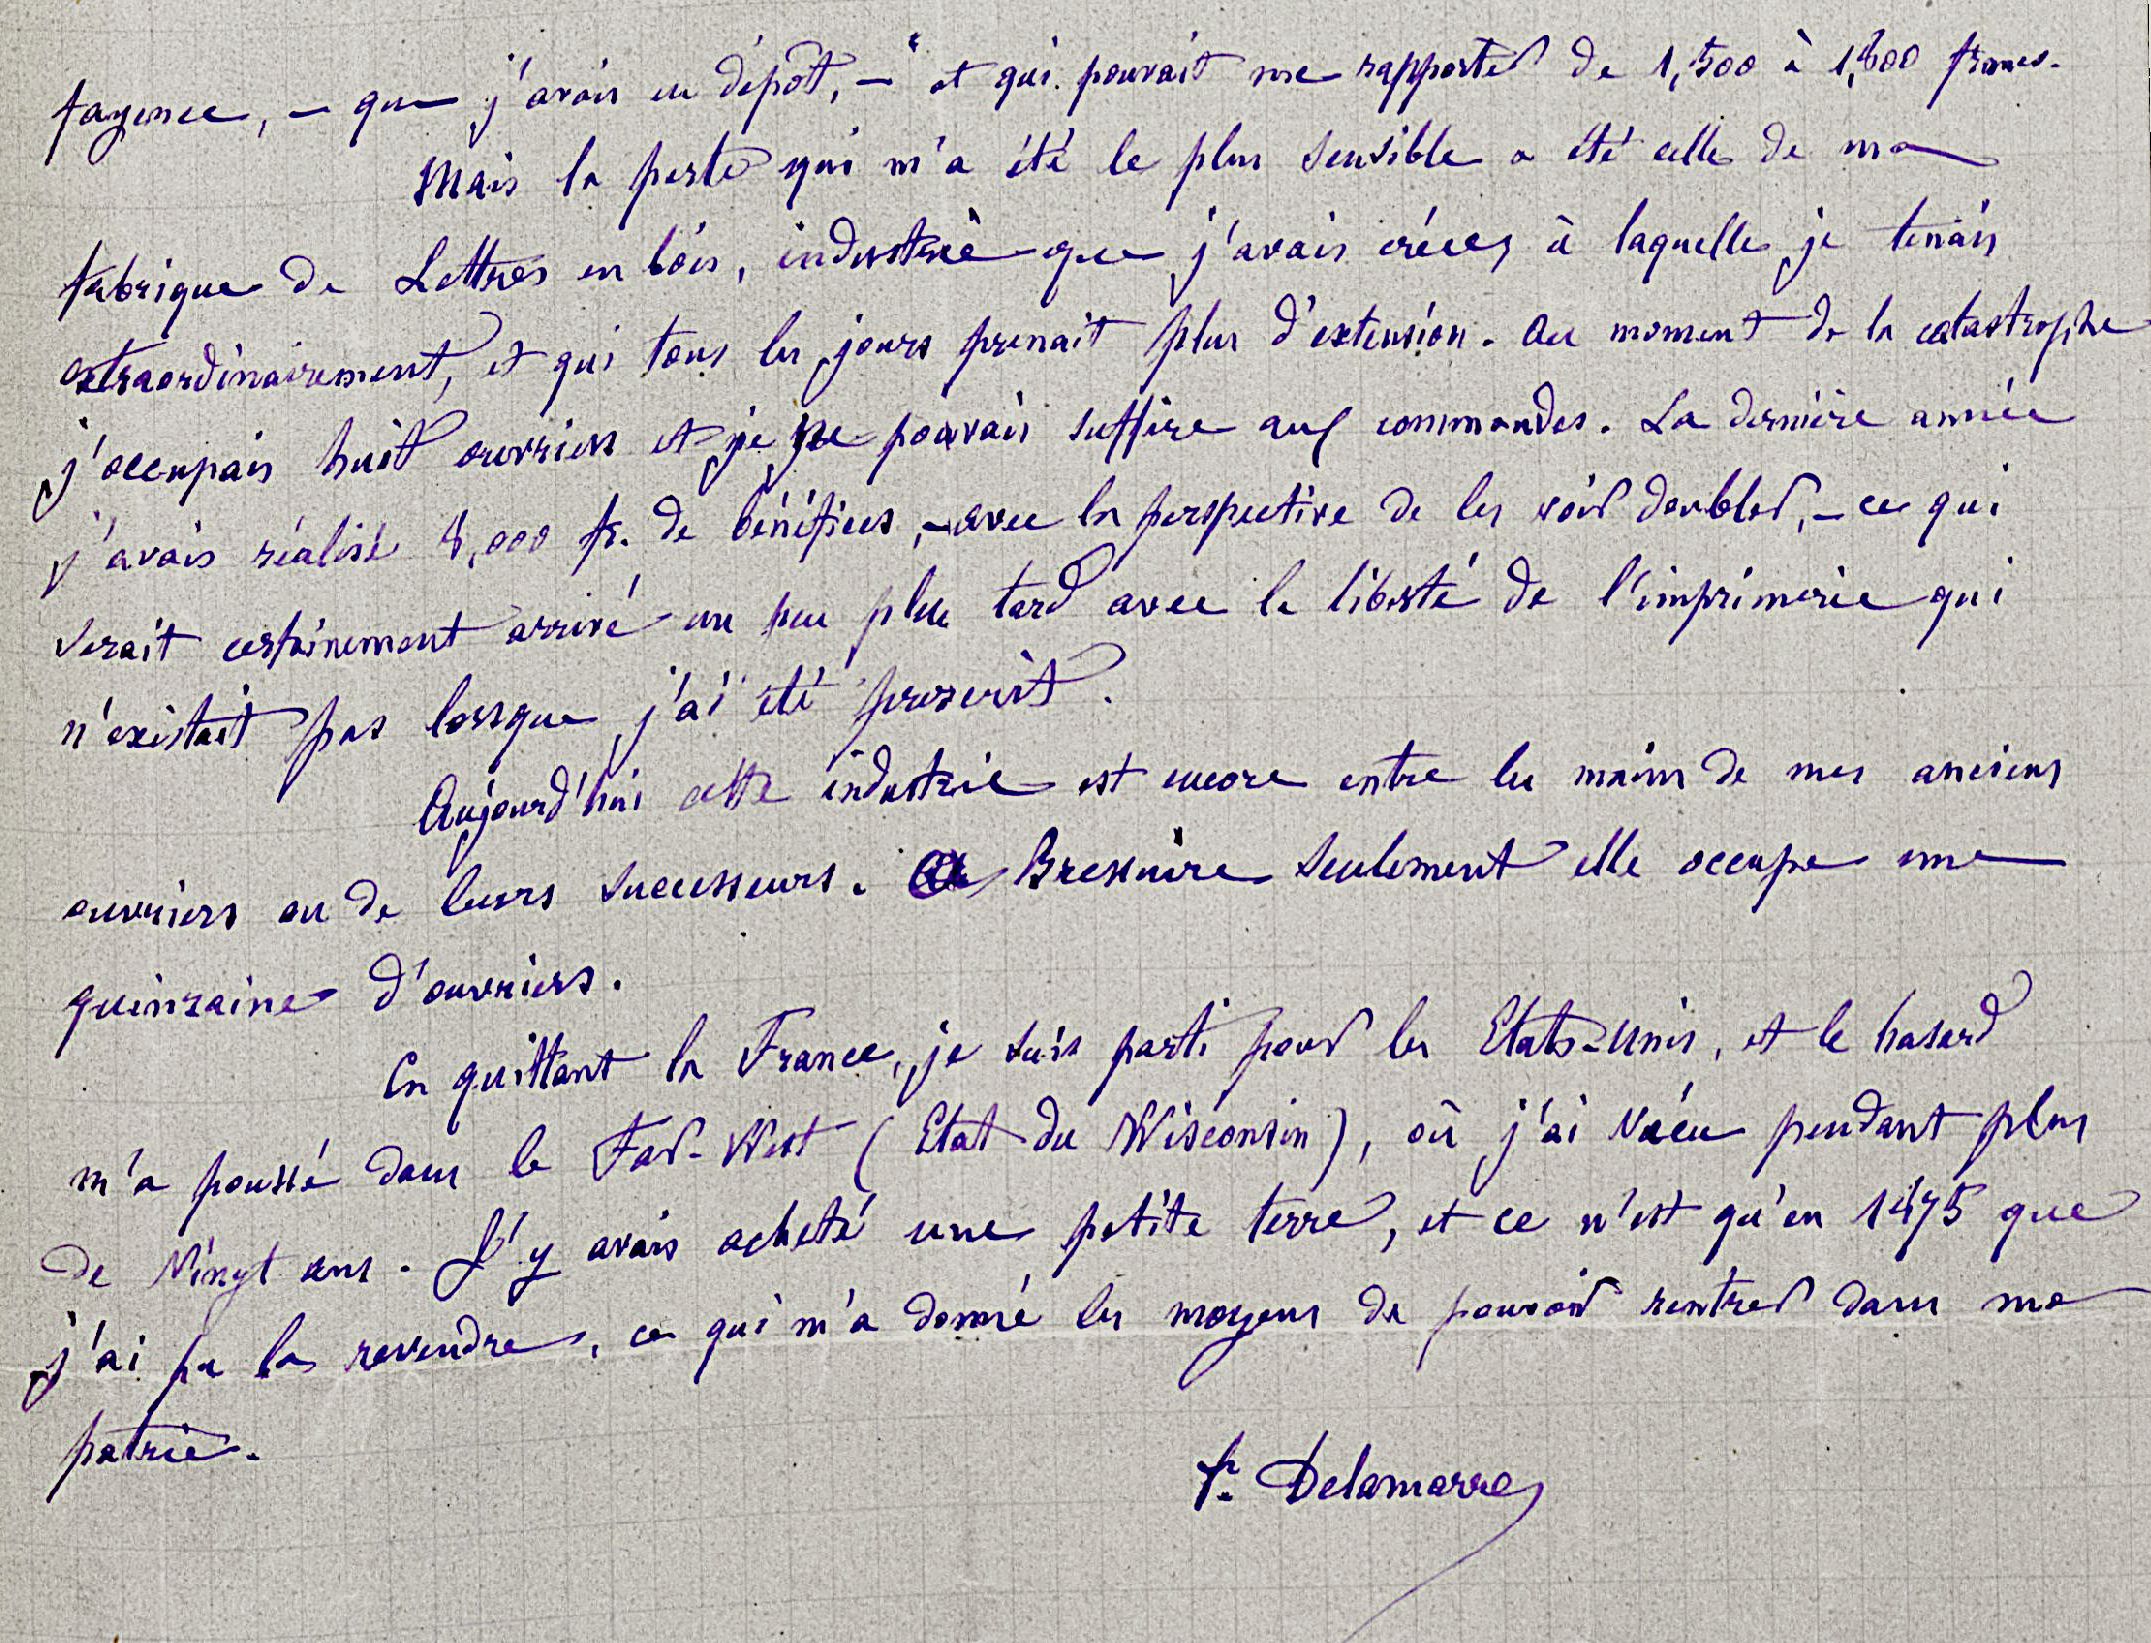 fayence, — que j'avais en dépôt, — et qui pouvait me rapporter de 1,500 à 1,800 francs.
Mais la perte qui m'a été le plus sensible a été celle de ma
fabrique de Lettres en bois, industrie que j'avais créée, à laquelle je tenais
extraordinairement, et qui tous les jours prenait plus d'extension. Au moment de la catastrophe
j'occupais huit ouvriers et je ne pouvais suffire aux commandes. La dernière année
j'avais réalisé 8,000 fr. de bénéfices, — avec la perspective de les voir doubler, — ce qui
serait certainement arrivé un peu plus tard avec la liberté de l'imprimerie qui
n'existait pas lorsque j'ai été proscrit.
Aujourd'hui cette industrie est encore entre les mains de mes anciens
ouvriers ou de leurs successeurs. A Bressuire seulement elle occupe une
quinzaine d'ouvriers.
En quittant la France, je suis parti pour les Etats-Unis, et le hasard
m'a poussé dans le Far-West (Etat du Wisconsin), où j'ai vécu pendant plus
de vingt ans. J'y avais acheté une petite terre, et ce n'est qu'en 1875 que
j'ai pu la revendre, ce qui m'a donné les moyens de pouvoir rentrer dans ma
patrie.
Delamarre